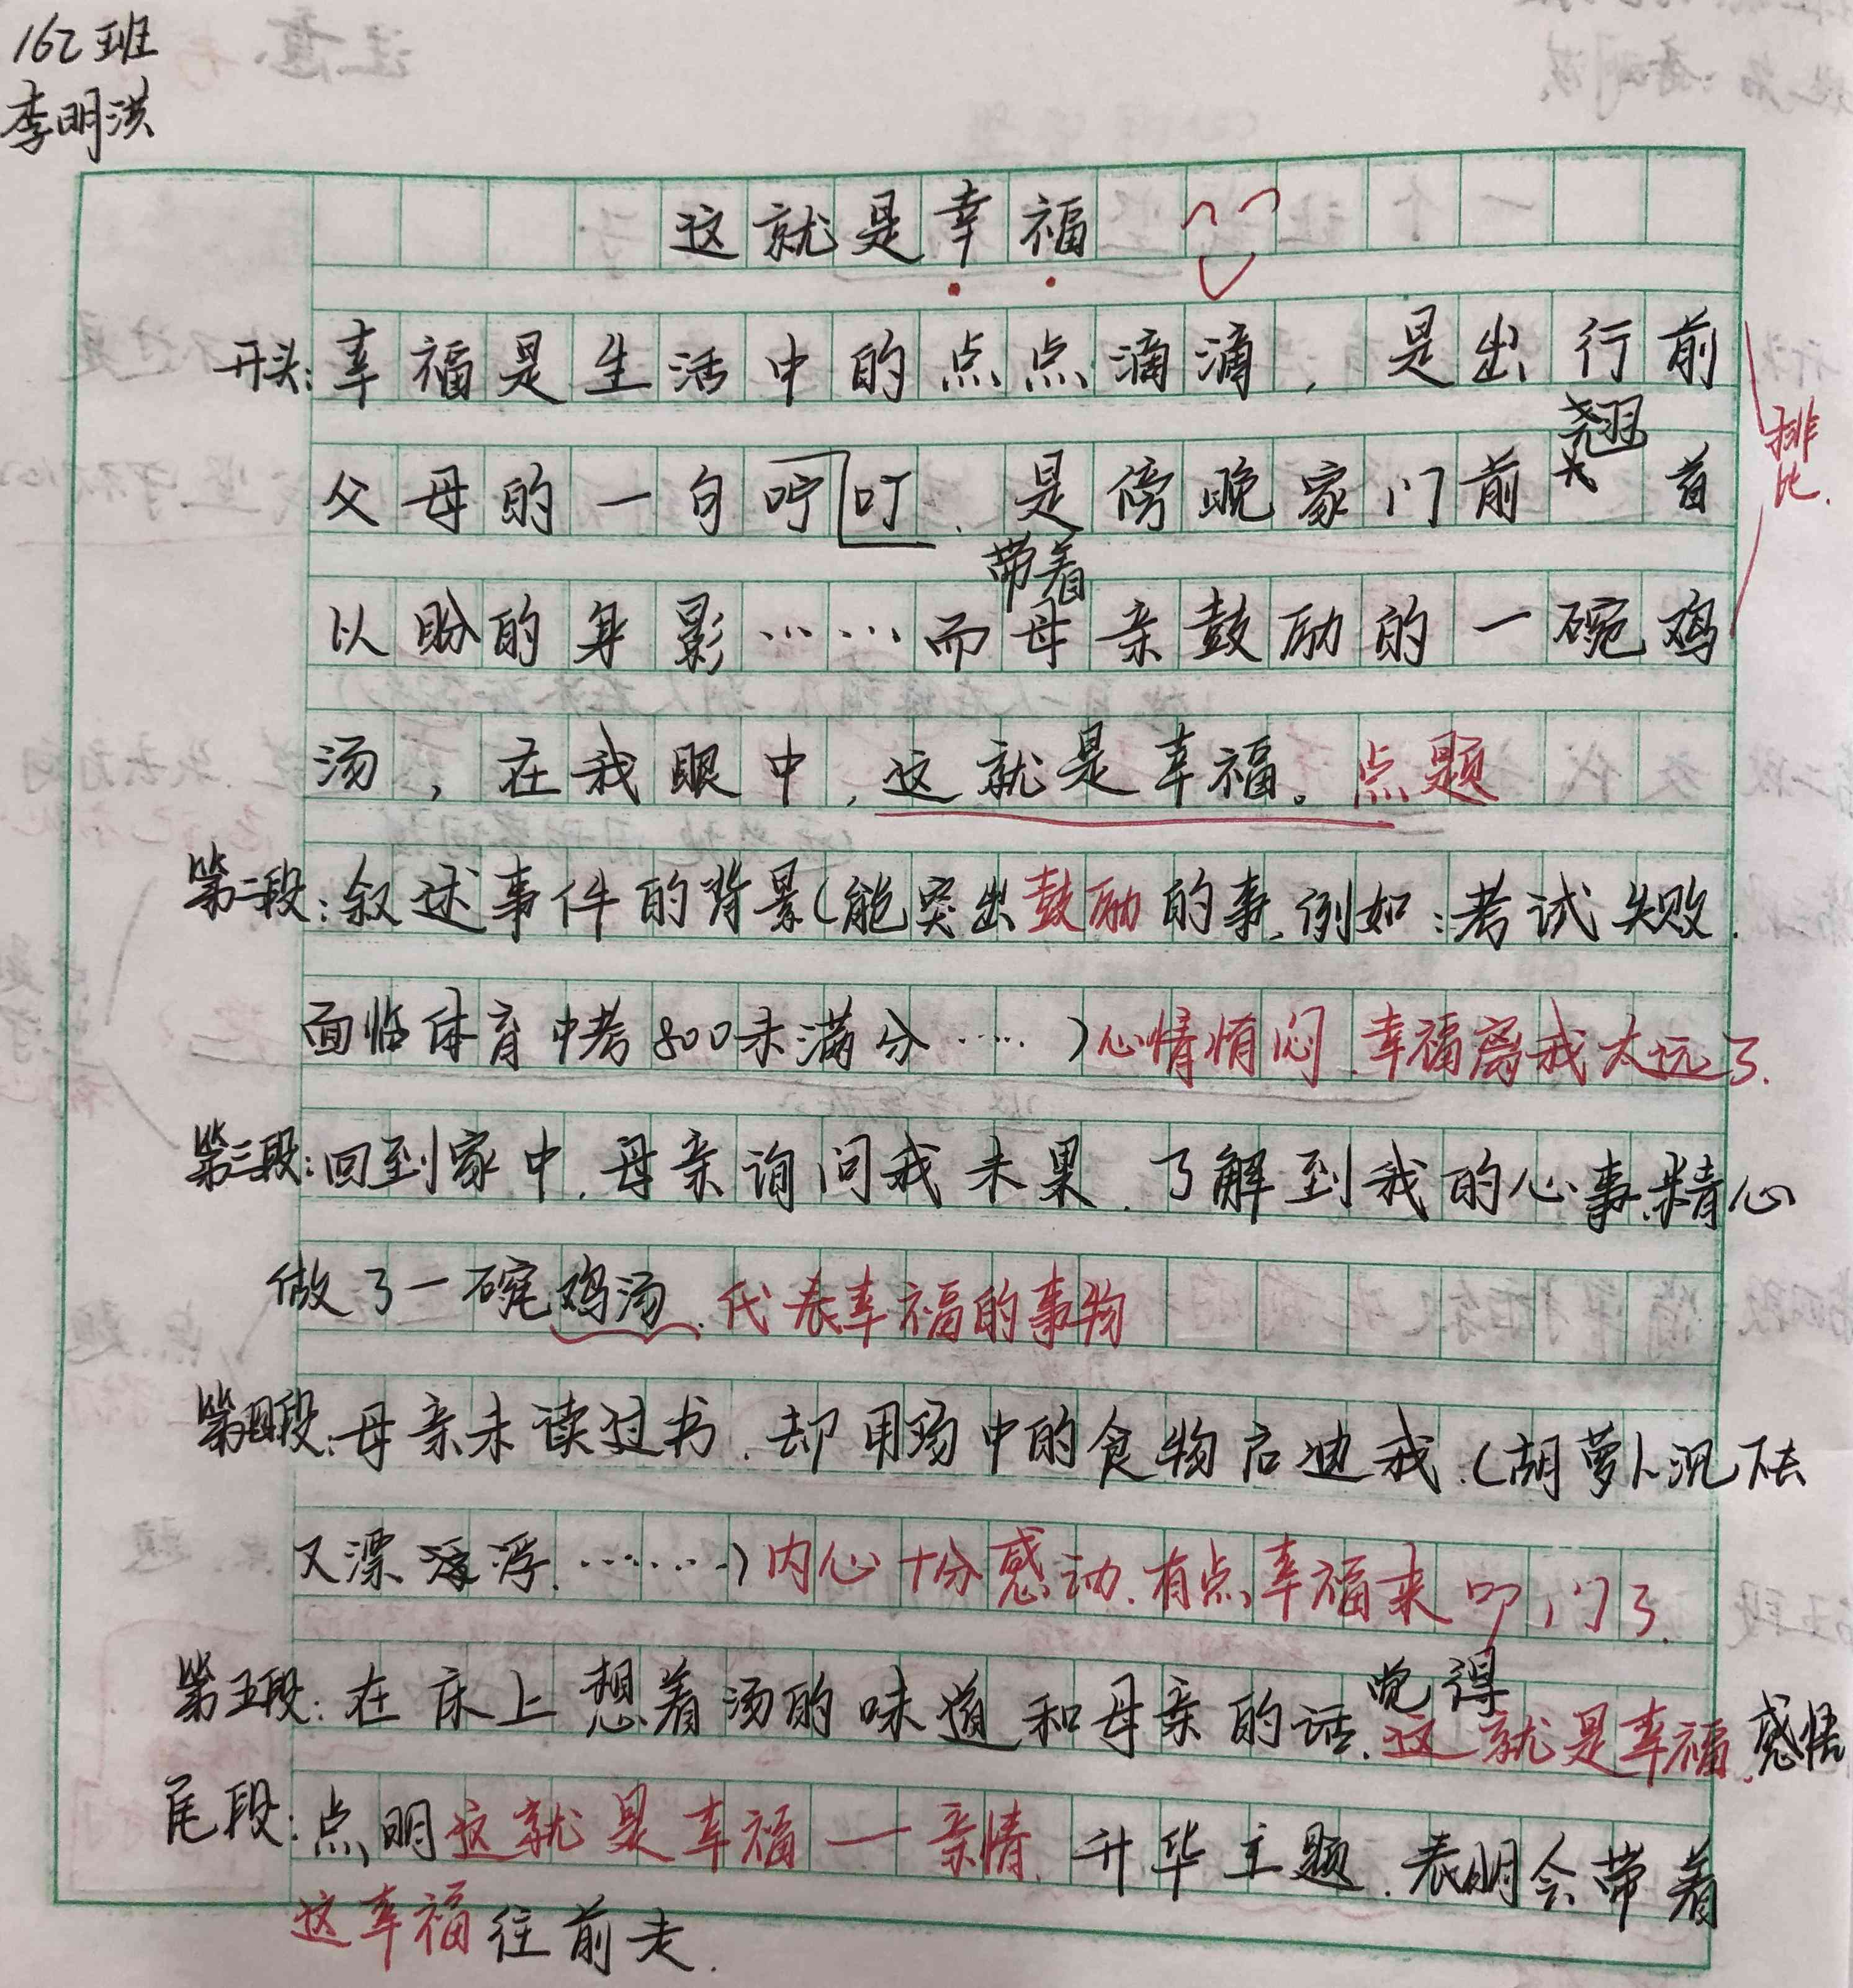 162班
李明洪
这就是幸福
开头:幸福是生活中的点点滴滴，是出行前
排比.
翘
父母的一句咛叮、是傍晚家门前 首
带着
以盼的身影……而母亲鼓励的一碗鸡
汤，在我眼中，这就是幸福。点题
第二段:叙述事件的背景(能突出鼓励的事,例如:考试失败.
面临体育中考800未满分……)心情惆闷.幸福离我太远了.
第三段:回到家中.母亲询问我未果.了解到我的心事.精心
做了一碗鸡汤.代表幸福的事物
第四段:母亲未读过书.却用汤中的食物启迪我.(胡萝卜沉下去
又漂浮.……)内心十分感动.有点幸福来叩门了.
觉得
第五段:在床上想着汤的味道和母亲的话.这就是幸福.感悟
尾段:点明这就是幸福—亲情.升华主题.表明会带着
这幸福往前走.